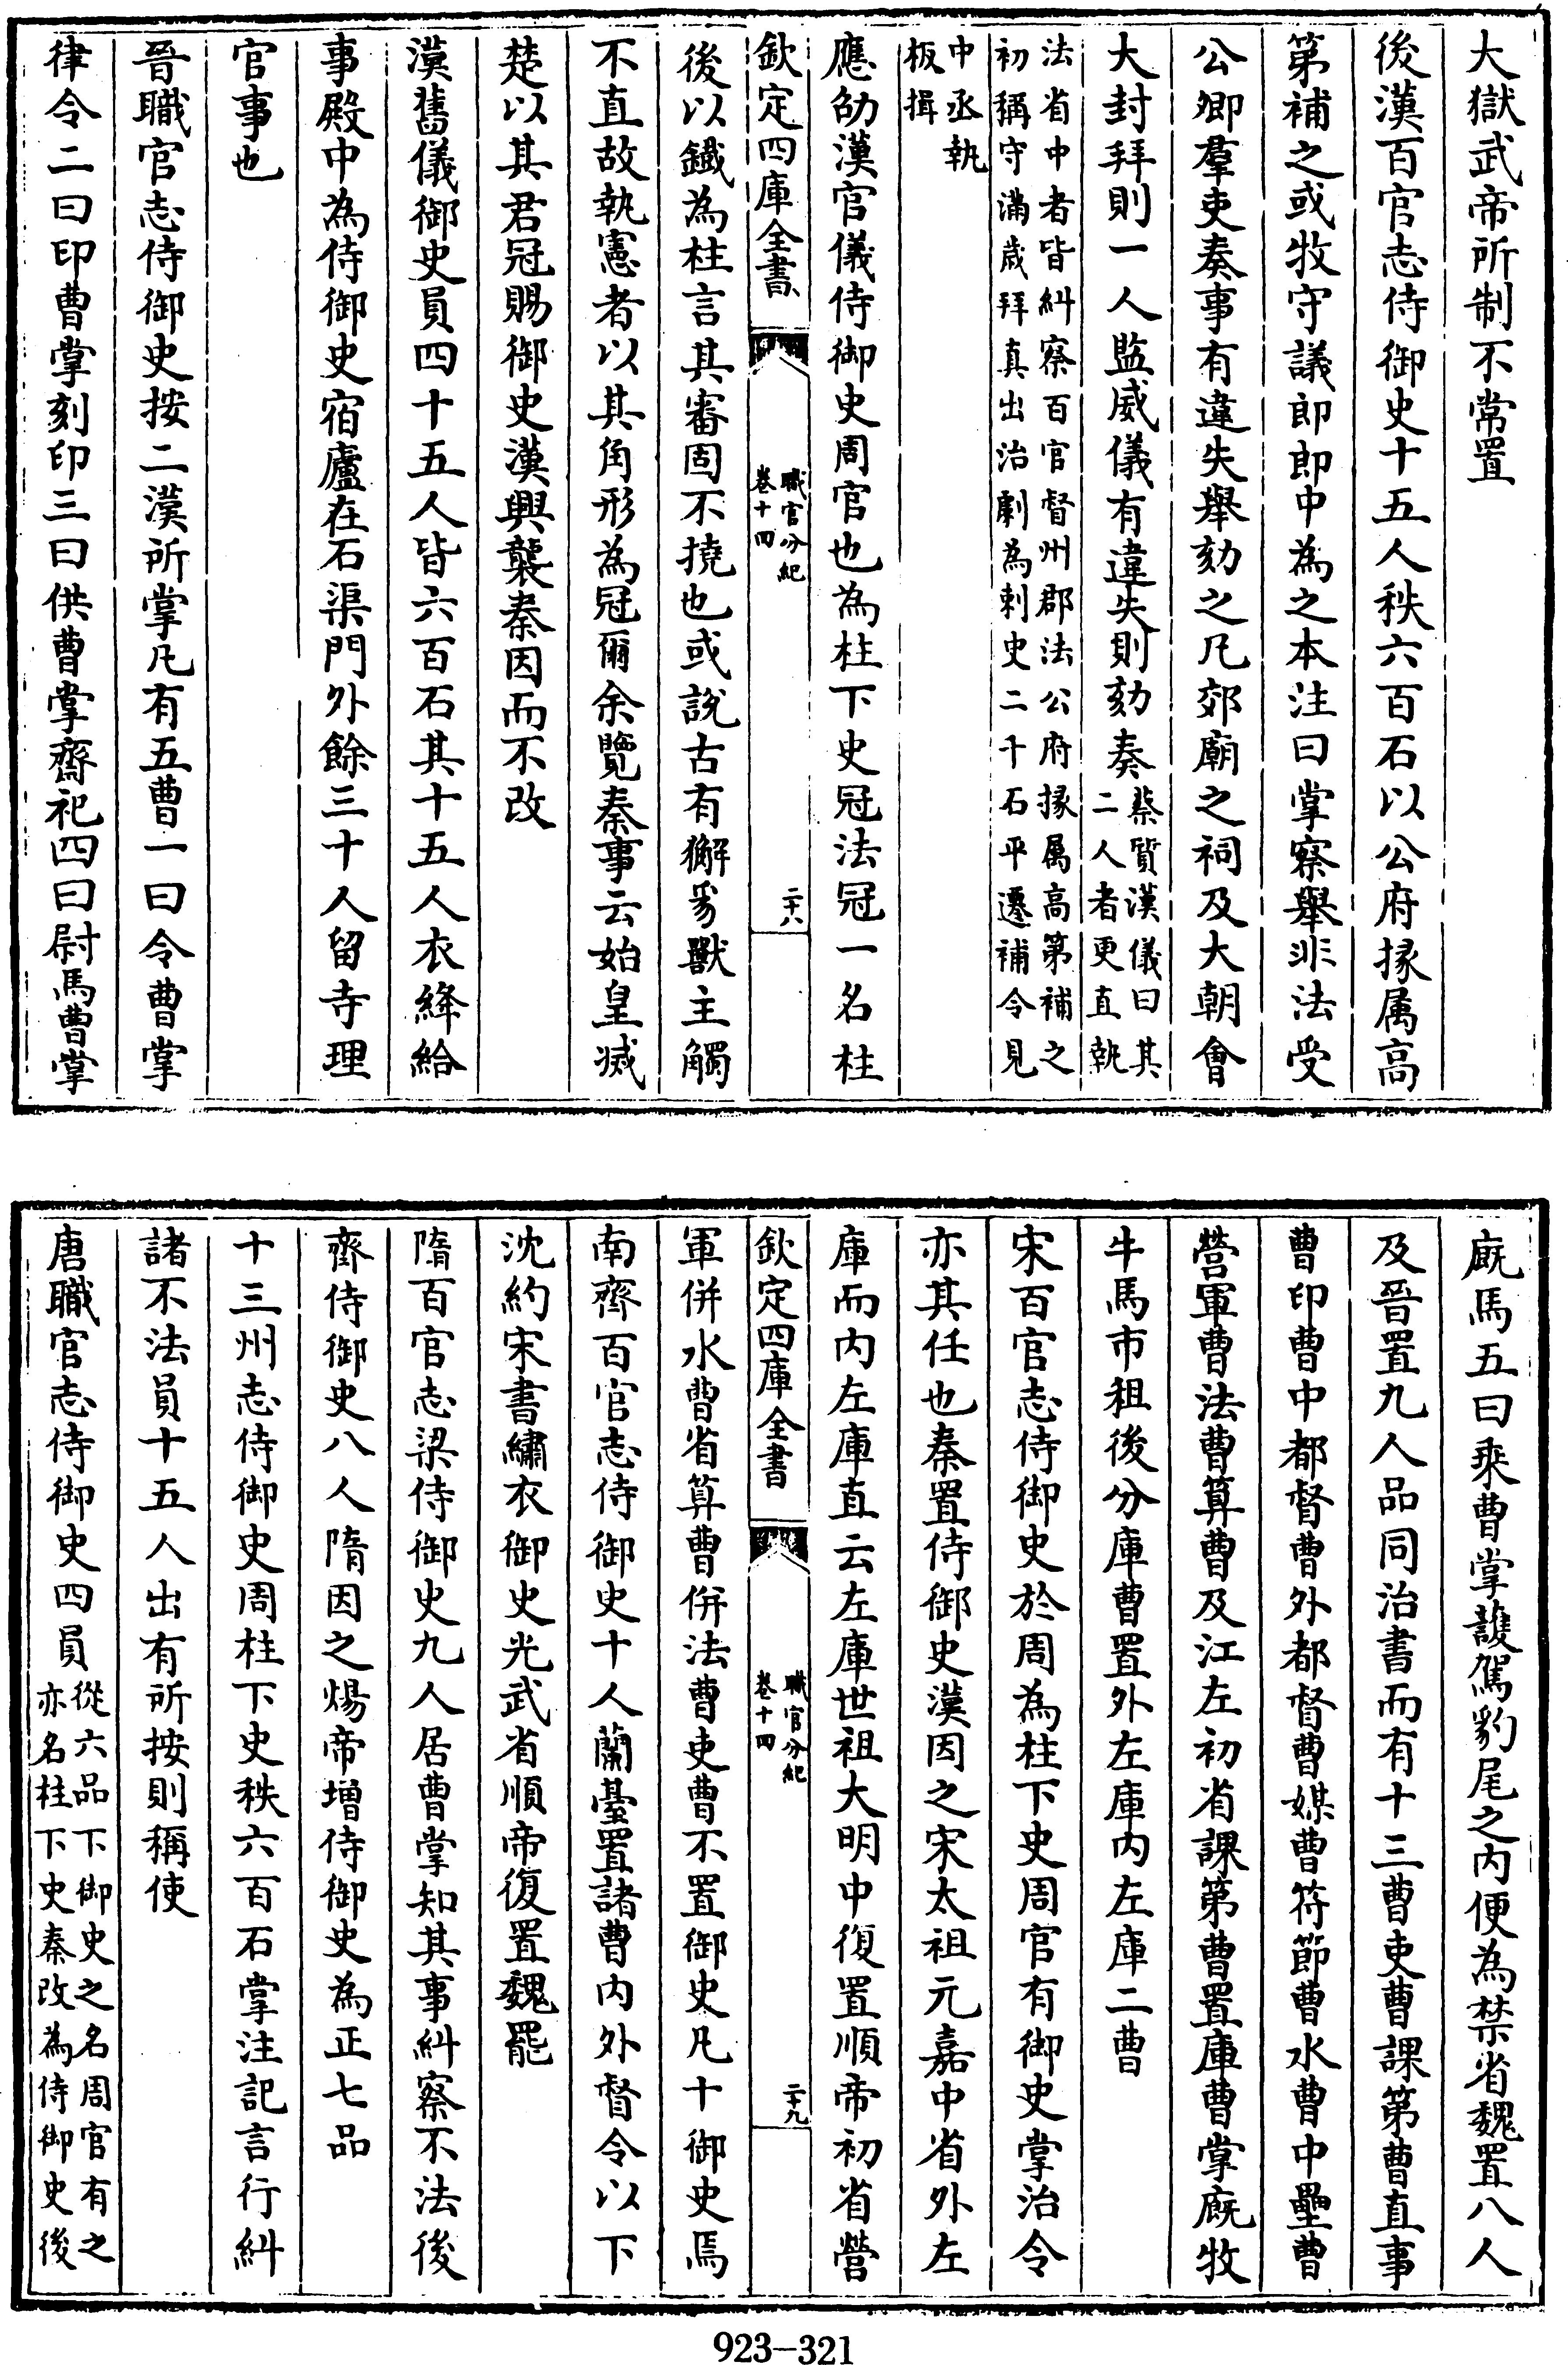 大獄武帝所制不常置
後漢百官志侍御史十五人秩六百石以公府掾属高
第補之或牧守議郎郎中為之本注曰掌察舉非法受
公卿羣吏奏事有違失舉劾之凡郊廟之祠及大朝會
大封拜則一人監威儀有違失則劾奏蔡質漢儀曰其
二人者更直執
法省中者皆糾察百官督州郡法公府掾属高第補之
初稱守滿歲拜真出治劇為刺史二千石平遷補令見
中丞執
板揖
應劭漢官儀侍御史周官也為柱下史冠法冠一名柱
欽定四庫全書
職官分紀
卷十四
二十八
後以鐵為柱言其審固不撓也或說古有獬豸獸主觸
不直故執憲者以其角形為冠爾余覽秦事云始皇滅
楚以其君冠賜御史漢興襲秦因而不改
漢舊儀御史員四十五人皆六百石其十五人衣絳給
事殿中為侍御史宿廬在石渠門外餘三十人留寺理
官事也
晉職官志侍御史按二漢所掌凡有五曹一曰令曹掌
律令二曰印曹掌刻印三曰供曹掌齋祀四曰尉馬曹掌
廐馬五曰乘曹掌護駕豹尾之内便為禁省魏置八人
及晉置九人品同治書而有十三曹吏曹課第曹直事
曹印曹中都督曹外都督曹媒曹符節曹水曹中壘曹
營軍曹法曹算曹及江左初省課第曹置庫曹掌廐牧
牛馬市租後分庫曹置外左庫内左庫二曹
宋百官志侍御史於周為柱下史周官有御史掌治令
亦其任也秦置侍御史漢因之宋太祖元嘉中省外左
庫而内左庫直云左庫世祖大明中復置順帝初省營
欽定四庫全書
職官分紀
卷十四
二十九
軍併水曹省算曹併法曹吏曹不置御史凡十御史焉
南齊百官志侍御史十人蘭臺置諸曹内外督令以下
沈約宋書繡衣御史光武省順帝復置魏罷
隋百官志梁侍御史九人居曹掌知其事糾察不法後
齊侍御史八人隋因之煬帝增侍御史為正七品
十三州志侍御史周柱下史秩六百石掌注記言行糾
諸不法員十五人出有所按則稱使
唐職官志侍御史四員從六品下御史之名周官有之
亦名柱下史秦改為侍御史後
923-321